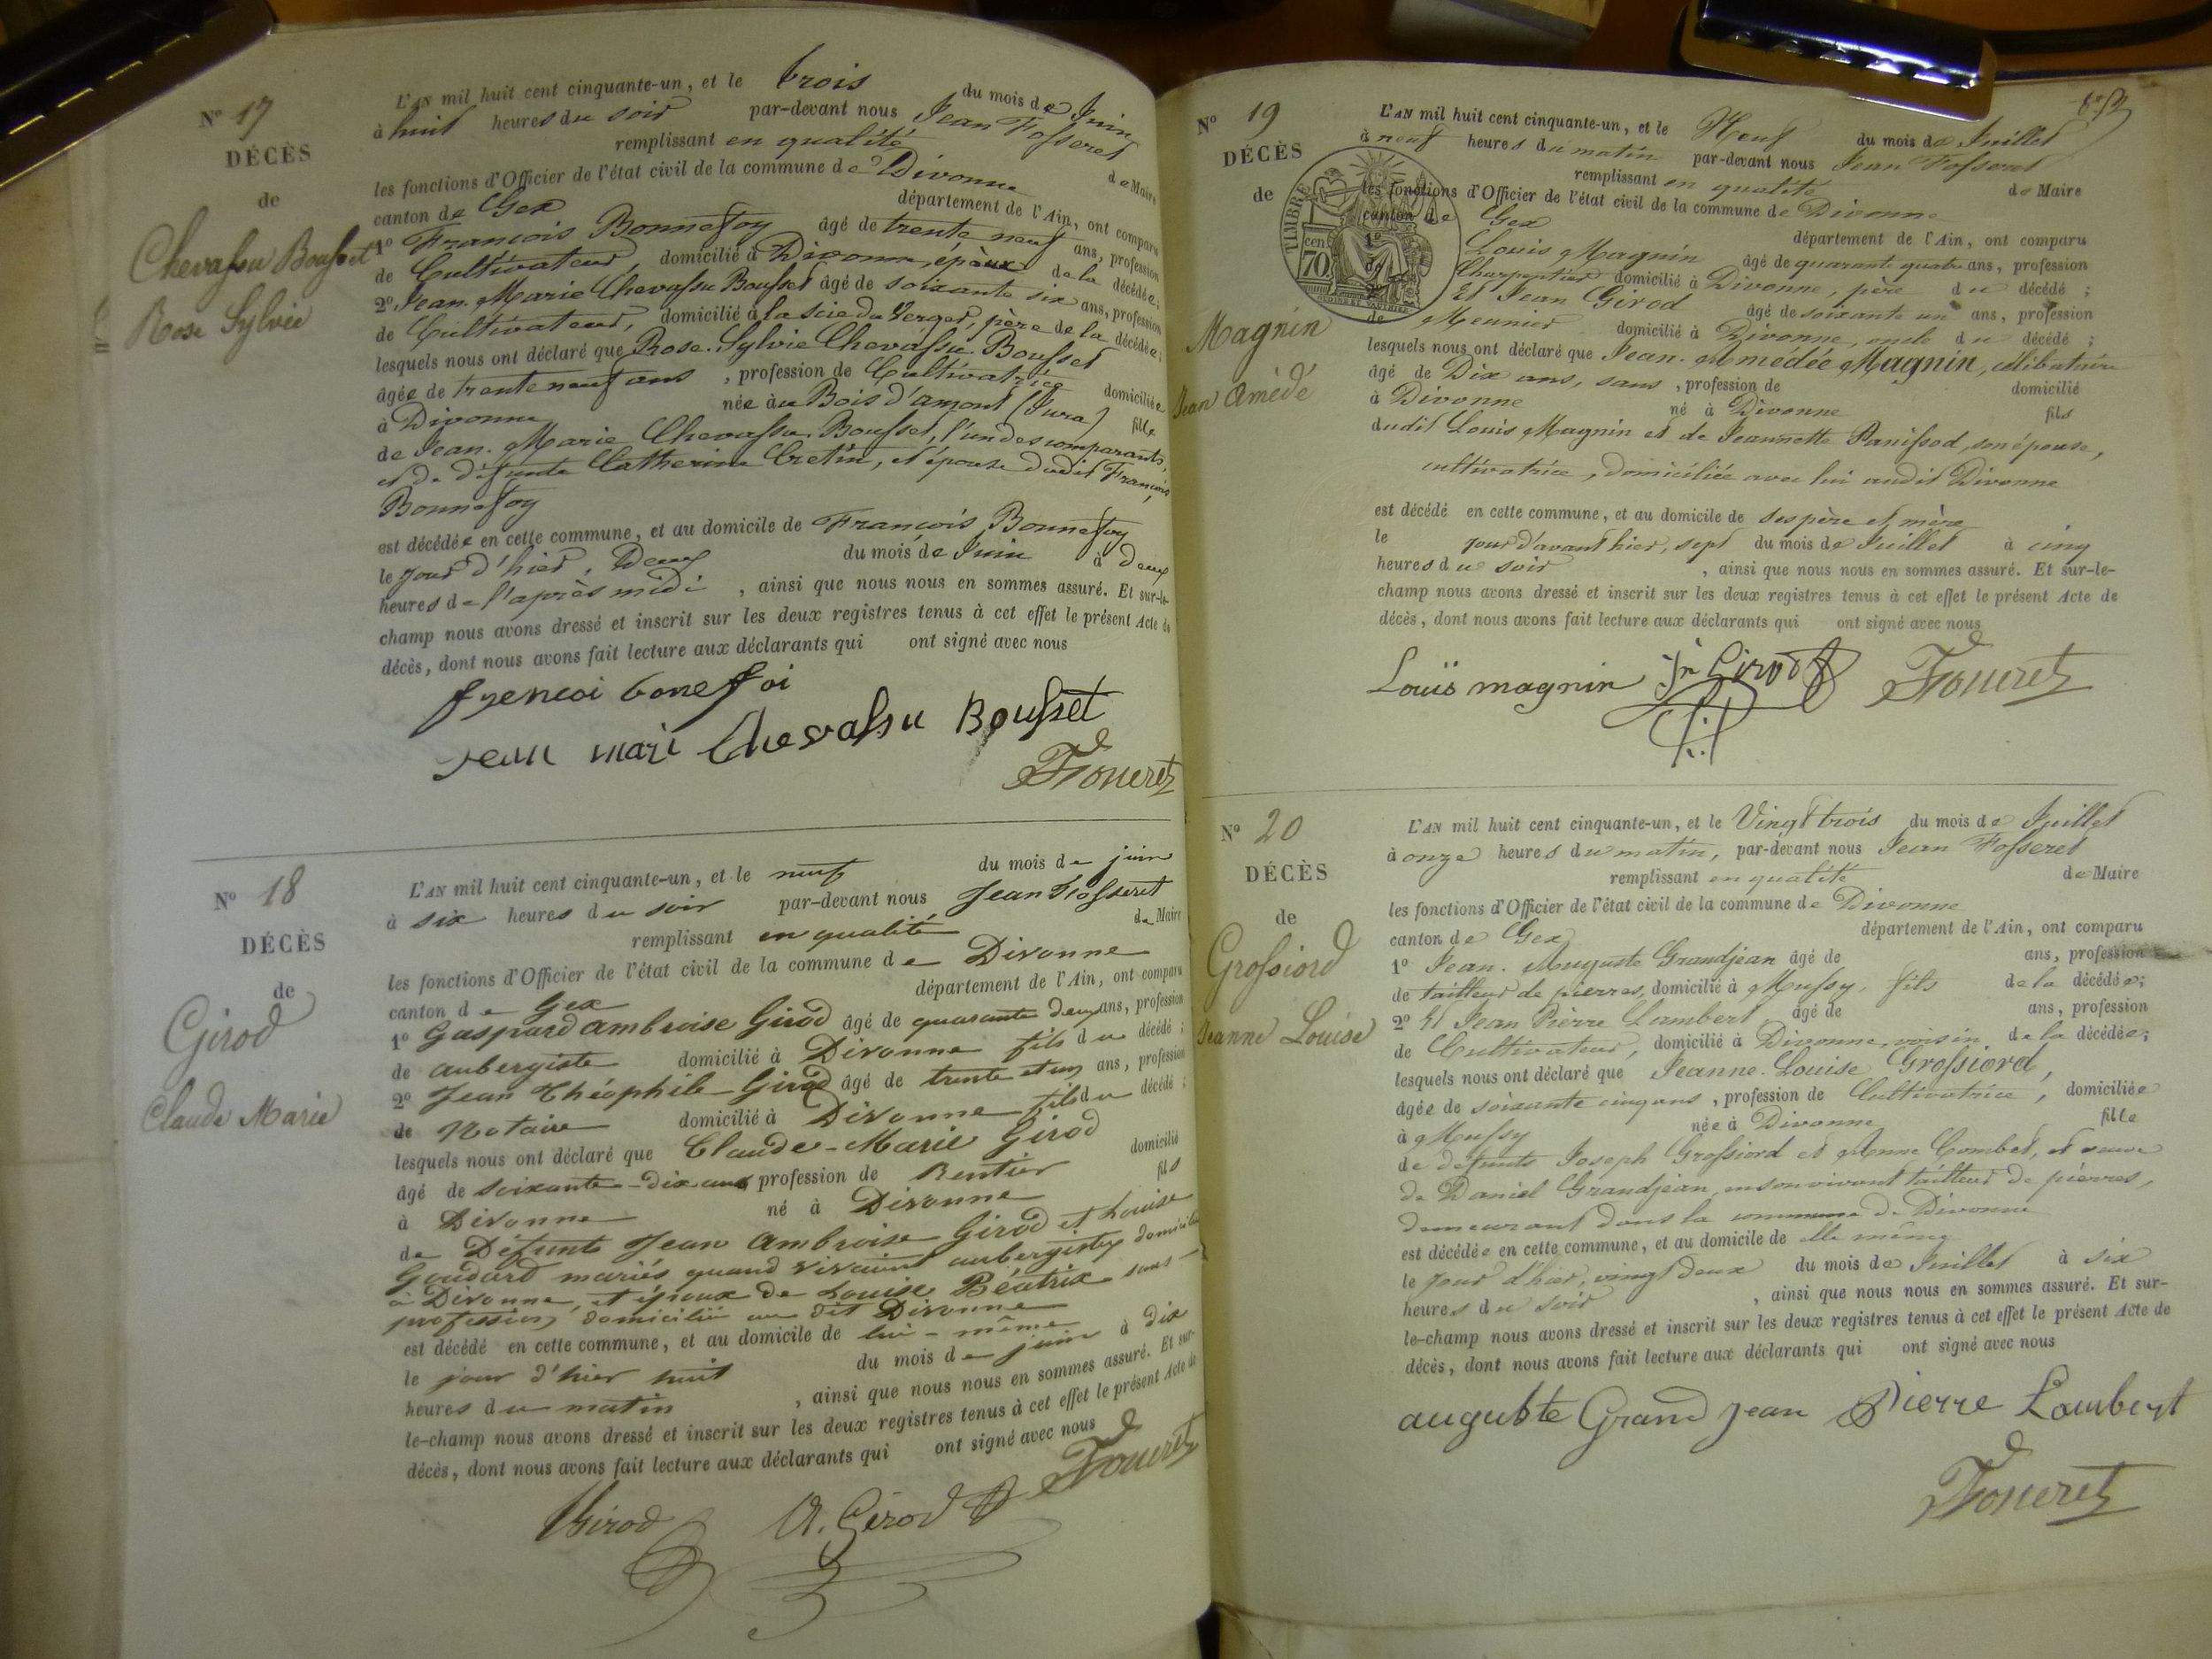 N° 17
DÉCÈS
de
Chevassu Bousset
Rose Sylvie
L'AN mil huit cent cinquante-un, et le trois du mois de Juin
à huit heures du soir par-devant nous Jean Fosseret
remplissant en qualité de Maire
les fonctions d'Officier de l'état civil de la commune de Divonne
canton de Gex département de l'Ain, ont comparu
1° François Bonnefoy âgé de trente neuf ans, profession
de Cultivateur, domicilié à Divonne, époux de la décédée;
2° Jean-Marie Chevassu Bousset âgé de soixante six ans, profession
de Cultivateur, domicilié à la scie du Verger, père de la décédée;
lesquels nous ont déclaré que Rose-Sylvie Chevassu Bousset
âgée de trente neuf ans, profession de Cultivatrice domiciliée
à Divonne née au Bois d'amont (Jura) fille
de Jean-Marie Chevassu Bousset, l'un des comparants,
et de défunte Catherine Cretin, et épouse dudit François
Bonnefoy
est décédée en cette commune, et au domicile de François Bonnefoy
le jour d'hier, Deux du mois de Juin à deux
heures de l'après midi, ainsi que nous nous en sommes assuré. Et sur-le-
champ nous avons dressé et inscrit sur les deux registres tenus à cet effet le présent Acte de
décès, dont nous avons fait lecture aux déclarants qui ont signé avec nous
frencoi bonefoi
jean mari Chevassu Bousset
Fosseret
N° 18
DÉCÈS
de
Girod
Claude Marie
L'AN mil huit cent cinquante-un, et le neuf du mois de juin
à six heures du soir par-devant nous Jean Fosseret
remplissant en qualité de Maire
les fonctions d'Officier de l'état civil de la commune de Divonne
canton de Gex département de l'Ain, ont comparu
1° Gaspard Ambroise Girod âgé de quarante deux ans, profession
de aubergiste domicilié à Divonne fils du décédé;
2° Jean Théophile Girod âgé de trente et un ans, profession
de Notaire domicilié à Divonne fils du décédé;
lesquels nous ont déclaré que Claude-Marie Girod
âgé de soixante-dix ans profession de Rentier domicilié
à Divonne né à Divonne fils
de Défunts Jean Ambroise Girod et Louise
Goudard mariés quand vivaient aubergistes domiciliés
à Divonne, et époux de Louise Béatrix sans
profession, domiciliée au dit Divonne
est décédé en cette commune, et au domicile de lui-même
le jour d'hier huit du mois de juin à dix
heures du matin, ainsi que nous nous en sommes assuré. Et sur-
le-champ nous avons dressé et inscrit sur les deux registres tenus à cet effet le présent Acte de
décès, dont nous avons fait lecture aux déclarants qui ont signé avec nous
Girod A. Girod Fosseret
N° 19
DÉCÈS
de
Magnin
Jean Amédé
TIMBRE
cen 70
L'AN mil huit cent cinquante-un, et le Neuf du mois de Juillet
à neuf heures du matin par-devant nous Jean Fosseret
remplissant en qualité de Maire
les fonctions d'Officier de l'état civil de la commune de Divonne
canton de Gex département de l'Ain, ont comparu
1° Louis Magnin âgé de quarante quatre ans, profession
de Charpentier domicilié à Divonne, père du décédé;
2° Et Jean Girod âgé de soixante un ans, profession
de Meunier domicilié à Divonne, oncle du décédé;
lesquels nous ont déclaré que Jean-Amedée Magnin, célibataire
âgé de Dix ans, sans, profession de domicilié
à Divonne né à Divonne fils
dudit Louis Magnin et de Jeannette Panissod, son épouse,
cultivatrice, domiciliée avec lui audit Divonne
est décédé en cette commune, et au domicile de ses père et mère
le jour d'avant hier, sept du mois de Juillet à cinq
heures du soir, ainsi que nous nous en sommes assuré. Et sur-le-
champ nous avons dressé et inscrit sur les deux registres tenus à cet effet le présent Acte de
décès, dont nous avons fait lecture aux déclarants qui ont signé avec nous
Louis magnin Jn Girod Fosseret
N° 20
DÉCÈS
de
Grossiord
Jeanne Louise
L'AN mil huit cent cinquante-un, et le Vingt trois du mois de Juillet
à onze heures du matin, par-devant nous Jean Fosseret
remplissant en qualité de Maire
les fonctions d'Officier de l'état civil de la commune de Divonne
canton de Gex département de l'Ain, ont comparu
1° Jean-Auguste Grandjean âgé de ans, profession
de tailleur de pierres, domicilié à Mussy, fils de la décédée;
2° Et Jean Pierre Lambert âgé de ans, profession
de Cultivateur, domicilié à Divonne, voisin de la décédée;
lesquels nous ont déclaré que Jeanne-Louise Grossiord,
âgée de soixante cinq ans, profession de Cultivatrice, domiciliée
à Mussy née à Divonne fille
de defunts Joseph Grossiord et Anne Combet, et veuve
de Daniel Grandjean, en son vivant tailleur de pierres,
demeurant dans la commune de Divonne
est décédée en cette commune, et au domicile de elle même
le jour d'hier, vingt deux du mois de Juillet à six
heures du soir, ainsi que nous nous en sommes assuré. Et sur-
le-champ nous avons dressé et inscrit sur les deux registres tenus à cet effet le présent Acte de
décès, dont nous avons fait lecture aux déclarants qui ont signé avec nous
auguste Grand jean Pierre Lambert
Fosseret